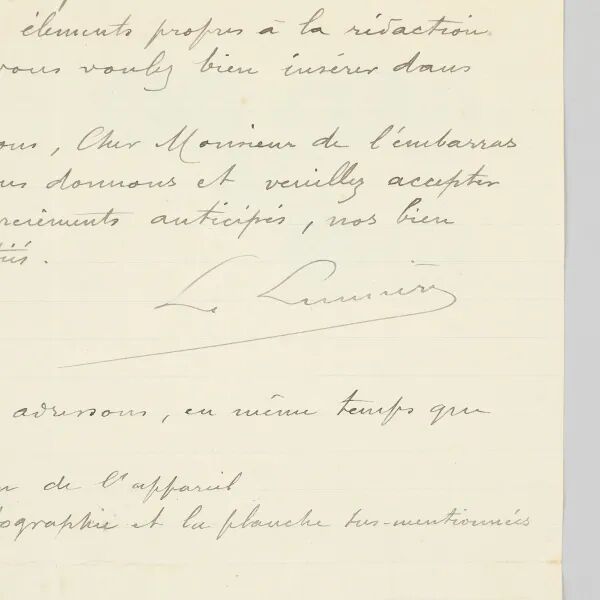 élements propres à la rédaction
vous voulez bien insérer dans
ous, Cher Monsieur de l'embarras
us donnons et veuillez accepter
erciements anticipés, nos bien
L. Lumière
adressons, en même temps que
de l'appareil
tographie et la planche sus-mentionnées